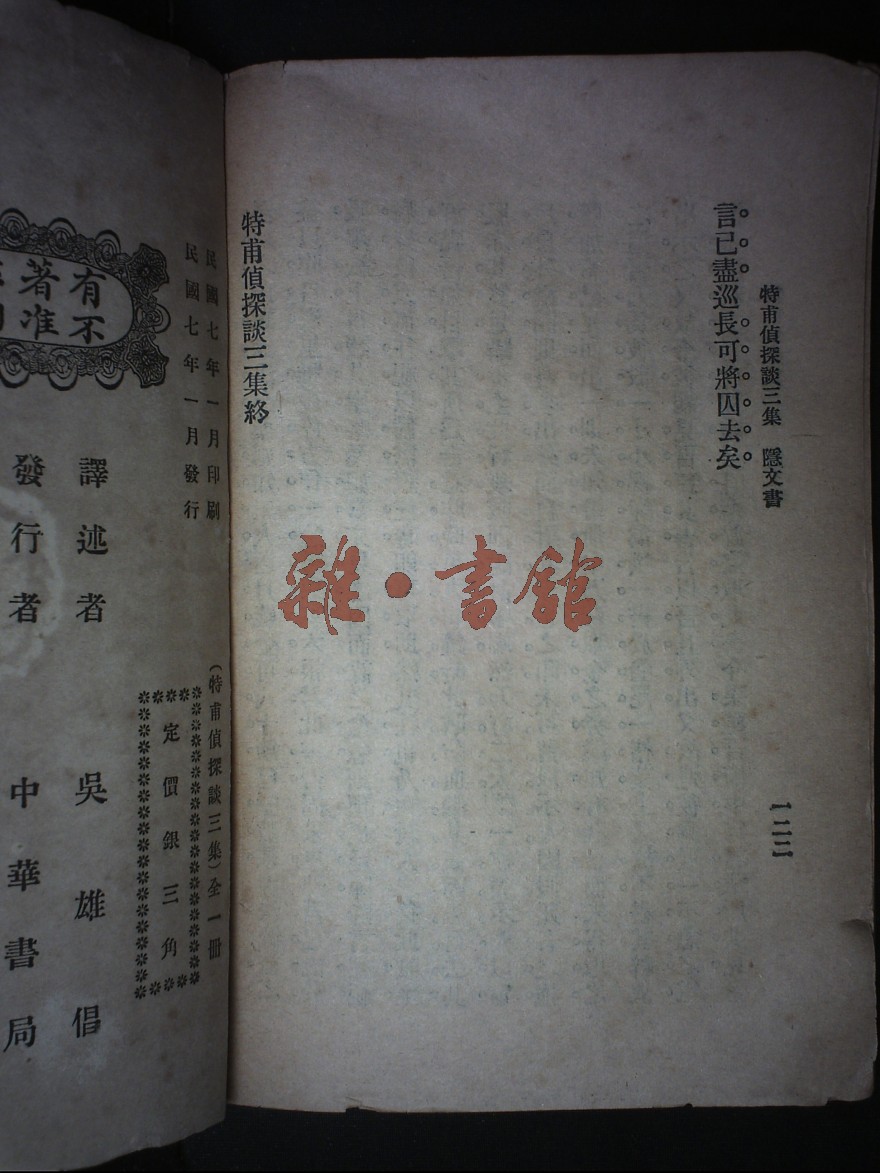 特甫偵探談三集　隱文書
一二二
言已盡巡長可將囚去矣
特甫偵探談三集終
雜·書舘
民國七年一月印刷
民國七年一月發行
（特甫偵探談三集）全一冊
定價銀三角
有不
著准
譯述者　吳雄倡
發行者　中華書局